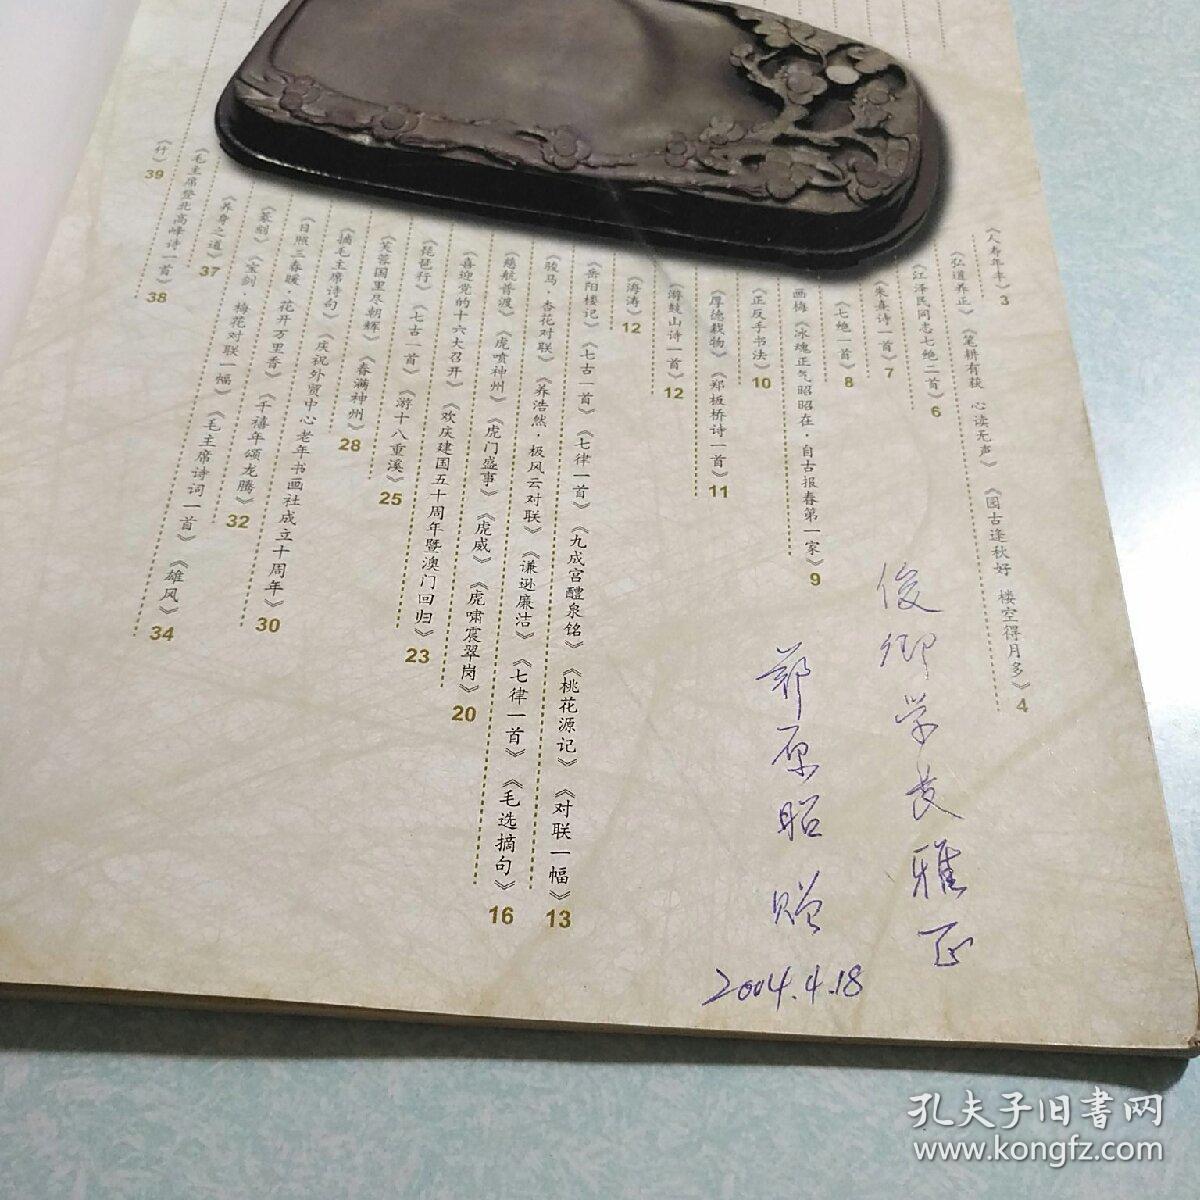 《人寿年丰》3
《弘道养正》《笔耕有获　心读无声》《园古逢秋好　楼空得月多》4
《江泽民同志七绝二首》6
《朱熹诗一首》7
《七绝一首》8
画梅《冰魂正气昭昭在·自古报春第一家》9
《正反手书法》10
《厚德载物》《郑板桥诗一首》11
《游鼓山诗一首》12
《海涛》12
《岳阳楼记》《七古一首》《七律一首》《九成宫醴泉铭》《桃花源记》《对联一幅》13
《骏马·杏花对联》《养浩然·极风云对联》《谦逊廉洁》《七律一首》《毛选摘句》16
《慈航普渡》《虎喷神州》《虎门盛事》《虎威》《虎啸震翠岗》20
《喜迎党的十六大召开》《欢庆建国五十周年暨澳门回归》23
《琵琶行》《七古一首》《游十八重溪》25
《芙蓉国里尽朝辉》《春满神州》28
《摘毛主席诗句》《庆祝外贸中心老年书画社成立十周年》30
《日照三春暖·花开万里香》《千禧年颂龙腾》32
《篆刻》《宝剑、梅花对联一幅》《毛主席诗词一首》《雄风》34
《养身之道》37
《毛主席登北高峰诗一首》38
《行》39
俊卿学长雅正
郑原昭 赠
2004.4.18
孔夫子旧书网
www.kongfz.com